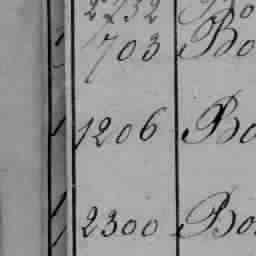 2732 Bo
1703 Bo
1206 Bo
2300 Bo